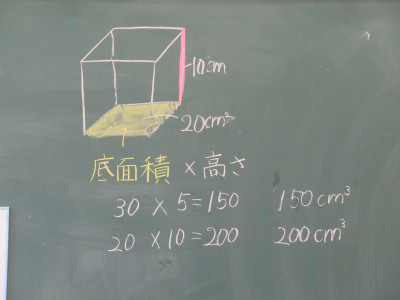 10cm
20cm²
底面積×高さ
30×5=150 150cm³
20×10=200 200cm³